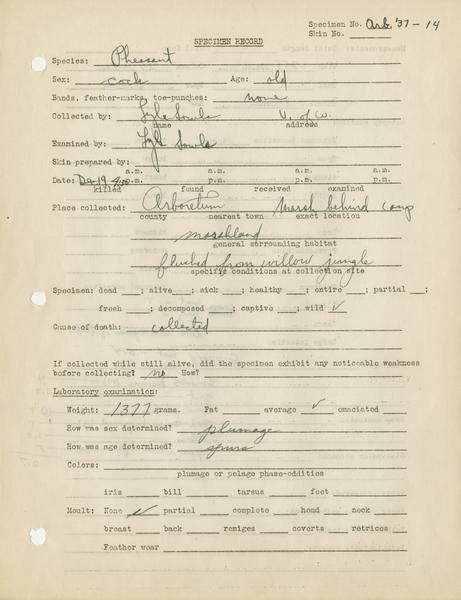 Specimen No. Arb '37-14
Skin No. ______
SPECIMEN RECORD
Species: Pheasant
Sex: cock Age: old
Bands, feather-marks, toe-punches: none
Collected by: Lyle Sowls U. of W.
name address
Examined by: Lyle Sowls
Skin prepared by:
a.m. a.m. a.m. a.m.
Date: Dec 19 4:00 p.m. p.m. p.m. p.m.
killed found received examined
Place collected: Arboretum Marsh behind camp
county nearest town exact location
marshland
general surrounding habitat
flushed from willow jungle
specific conditions at collection site
Specimen: dead ___; alive___; sick ___; healthy ___; entire ___; partial ___;
fresh ___; decomposed ___; captive ___; wild ✓
Cause of death: collected
If collected while still alive, did the specimen exhibit any noticeable weakness
before collecting? no How?
Laboratory examination:
Weight: 1377 grams. Fat ___ average ✓ emaciated ___
How was sex determined? plumage
How was age determined? spurs
Colors:
plumage or pelage phase-oddities
iris ___ bill ___ tarsus ___ feet ___
Moult: None ✓ partial ___ complete ___ head ___ neck ___
breast ___ back ___ remiges ___ coverts ___ retrices ___
Feather wear